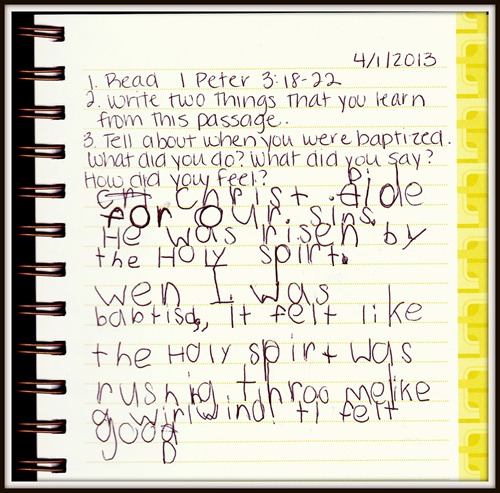 4/1/2013
1. Read 1 Peter 3:18-22
2. Write two things that you learn
from this passage.
3. Tell about when you were baptized.
What did you do? What did you say?
How did you feel?
Christ dide
for our sins.
He was risen by
the HOly spirt.
wen I was
babtisd, it felt like
the HOly spirt was
rushig throo me like
a wirlwind. ti felt
good